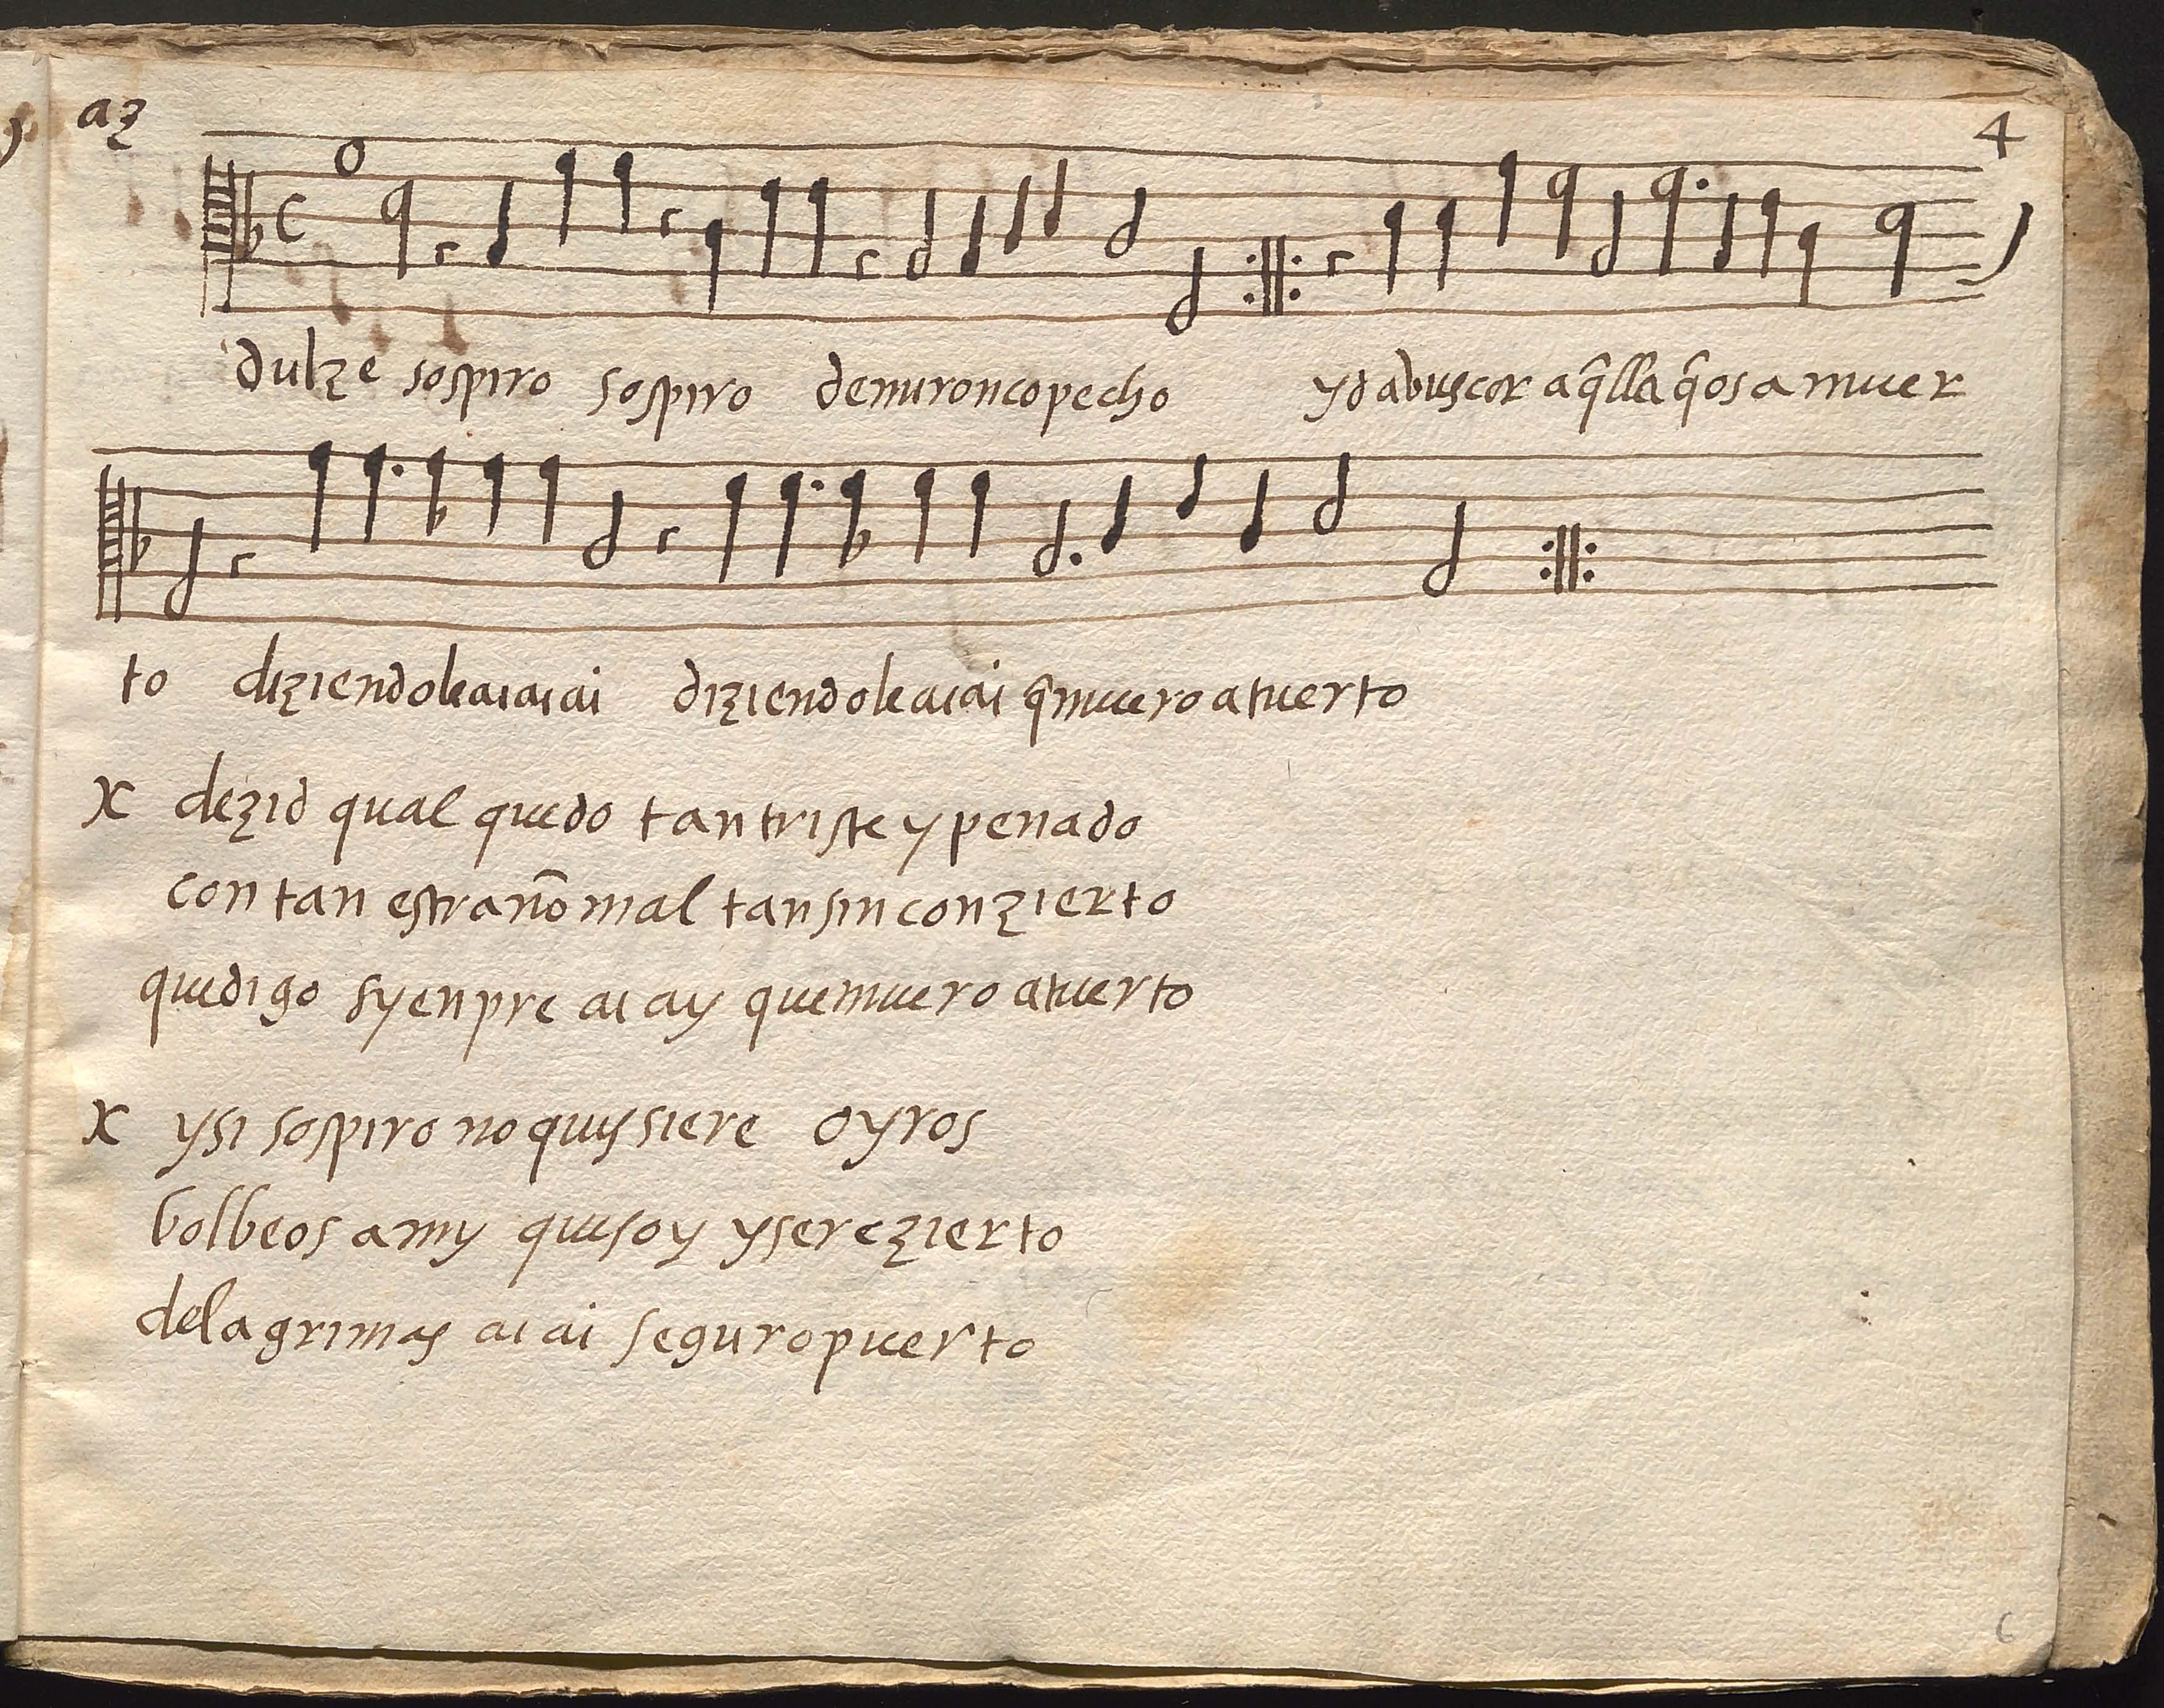 a3
4
dulze sospiro sospiro demironcopecho yd abuscar aq̃lla q̃ os a muer
to diziendoleaiaiai diziendoleaiai q̃muero atuerto
x dezid qual quedo tan triste y penado
con tan estraño mal tan sin conzierto
que digo syenpre ai ay que muero atuerto
x ysi sospiro no quysiere oyros
bolbeos amy que soy ysere zierto
delagrimas ai ai seguro puerto
6